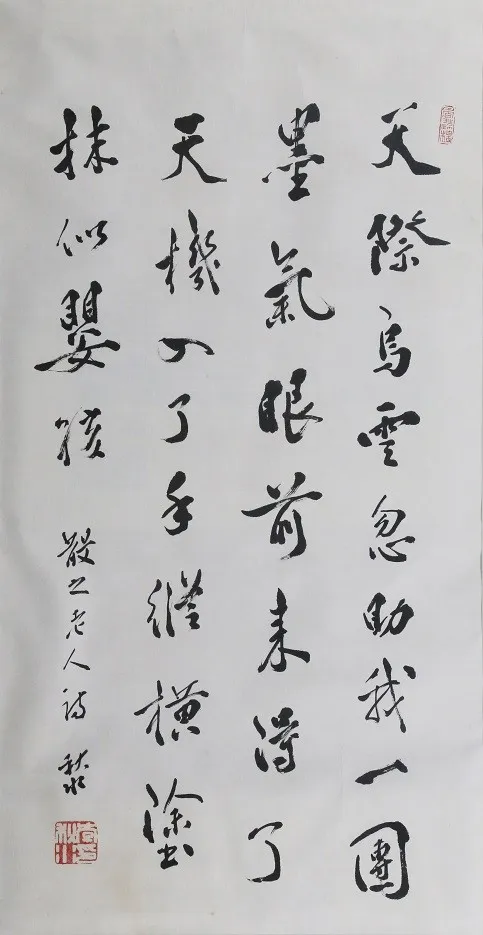 天際烏雲忽助我一團
墨氣眼前來得了
天機入了手縱橫塗
抹似嬰孩 散之老人詩 秋水